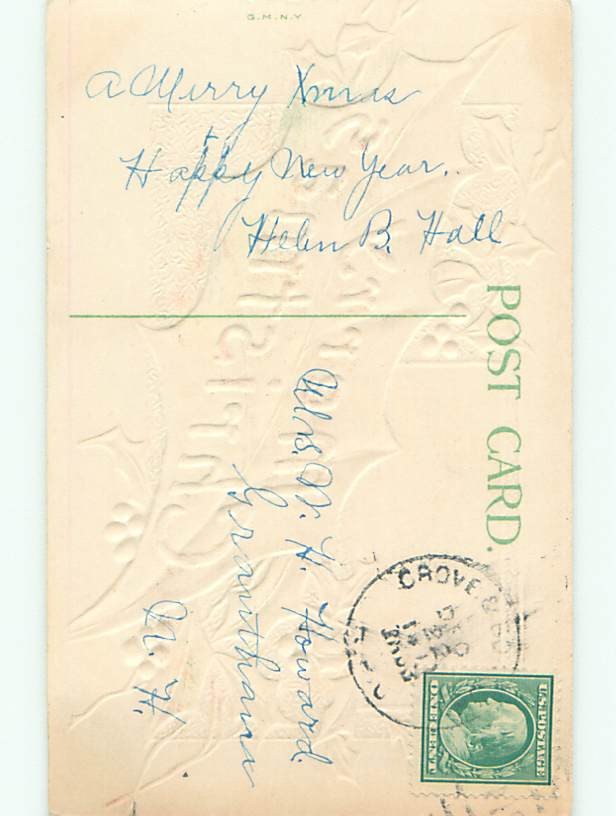 G.M.N.Y.
A Merry Xmas
+
Happy New Year.
Helen B. Hall
POST CARD.
Mrs. W. H. Howard
Grantham
N. H.
GROVE
U.S. POSTAGE
ONE CENT